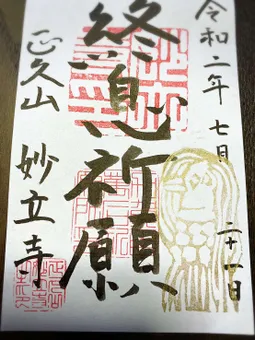 令和二年七月二十一日
終息祈願
正久山 妙立寺